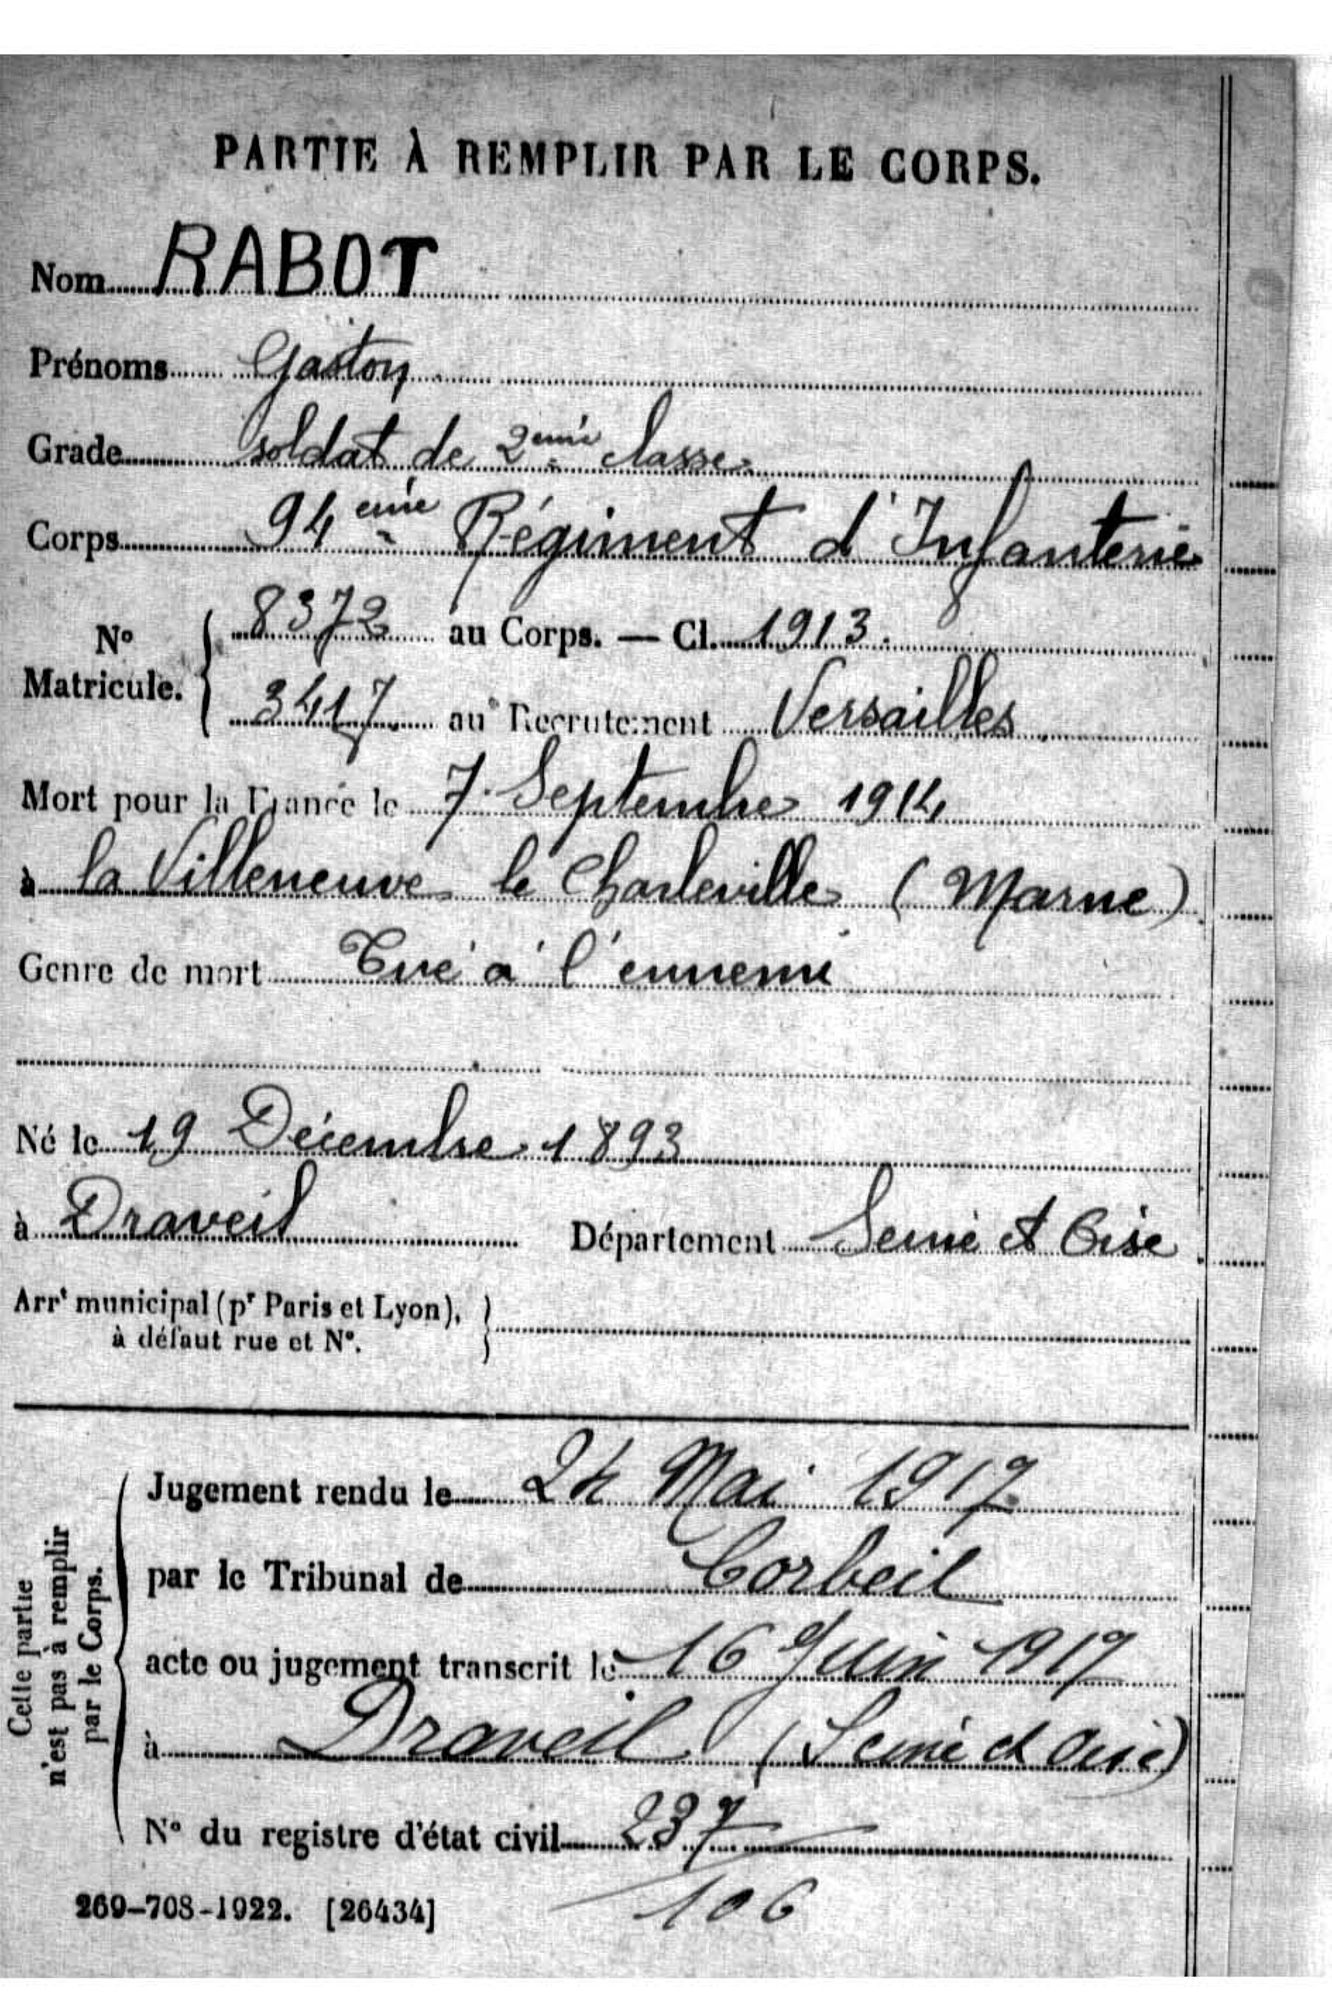 PARTIE À REMPLIR PAR LE CORPS.
Nom RABOT
Prénoms Gaston
Grade soldat de 2ème classe
Corps 94ème Régiment d'Infanterie
N° Matricule. { 8372 au Corps. — Cl. 1913.
3417 au Recrutement Versailles
Mort pour la France le 7 Septembre 1914
à la Villeneuve le Charleville (Marne)
Genre de mort Tué à l'ennemi
Né le 19 Décembre 1893
à Draveil Département Seine et Oise
Arrt municipal (pr Paris et Lyon), }
à défaut rue et N°.
Cette partie
n'est pas à remplir
par le Corps.
Jugement rendu le 24 Mai 1917
par le Tribunal de Corbeil
acte ou jugement transcrit le 16 Juin 1917
à Draveil (Seine et Oise)
N° du registre d'état civil 237
269-708-1922. [26434] 106